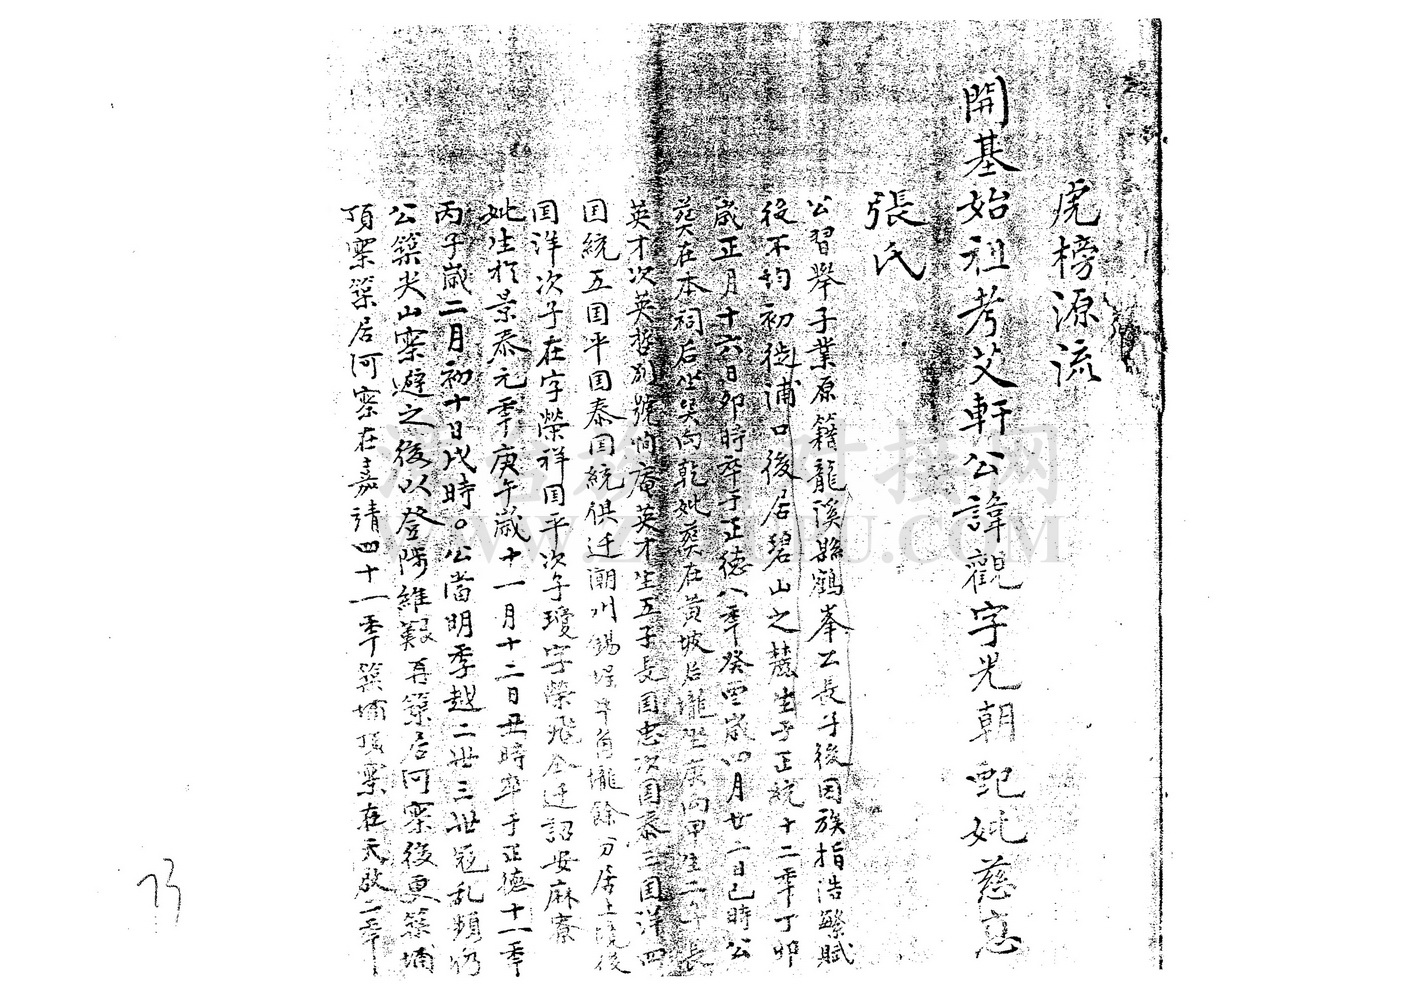 虎榜源流
開基始祖考艾軒公諱觀字光朝配妣慈惠
張氏
公習舉子業原籍龍溪縣鶴峯公長子後因族指浩繁賦
役不均初徙浦口後居碧山之麓生于正統十二年丁卯
歲正月十六日卯時卒于正德八年癸酉歲八月廿二日巳時公
葬在本祠后坐巽向乾妣葬在黄坡后壠坐庚向甲生二子長
英才次英哲別號澗庵英才生五子長国忠次国泰三国洋四
国統五国平国泰国統俱迁潮州錫埕牛角壠餘分居上境後
国洋次子在字榮祥国平次子瓊字榮飛仝迁詔安麻寮
妣生於景泰元年庚午歲十一月十二日丑時卒于正德十一年
丙子歲二月初十日戌時。公當明季越二世三世冦乱頻仍
公築尖山寨避之後以登陟維艱再築居河寨後更築埔
頂寨築居河寨在嘉靖四十一年築埔頂寨在天啟二年
73
WWW.ZTZUPU.COM